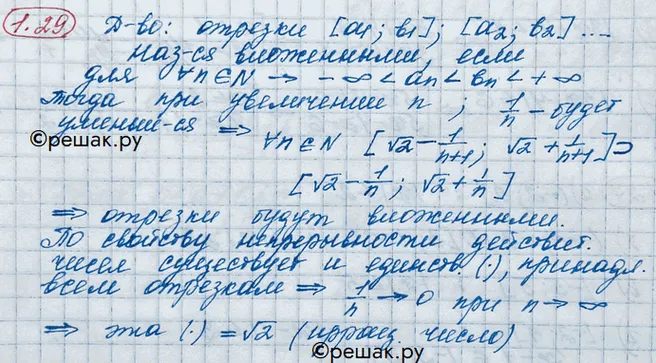 1.29 Д-во: отрезки [a1; в1]; [a2; в2] ...
наз-ся вложенными, если
для ∀n∈N → -∞ < an < вn < +∞
тогда при увеличении n; 1/n - будет
уменьш-ся ⇒
∀n∈N [√2 - 1/(n+1); √2 + 1/(n+1)] ⊃
©решак.ру
[√2 - 1/n; √2 + 1/n]
⇒ отрезки будут вложенными.
По свойству непрерывности действит.
чисел существует и единств (·), принадл.
всем отрезкам ⇒ 1/n → 0 при n → ∞
⇒ эта (·) = √2 (иррац. число)
©решак.ру